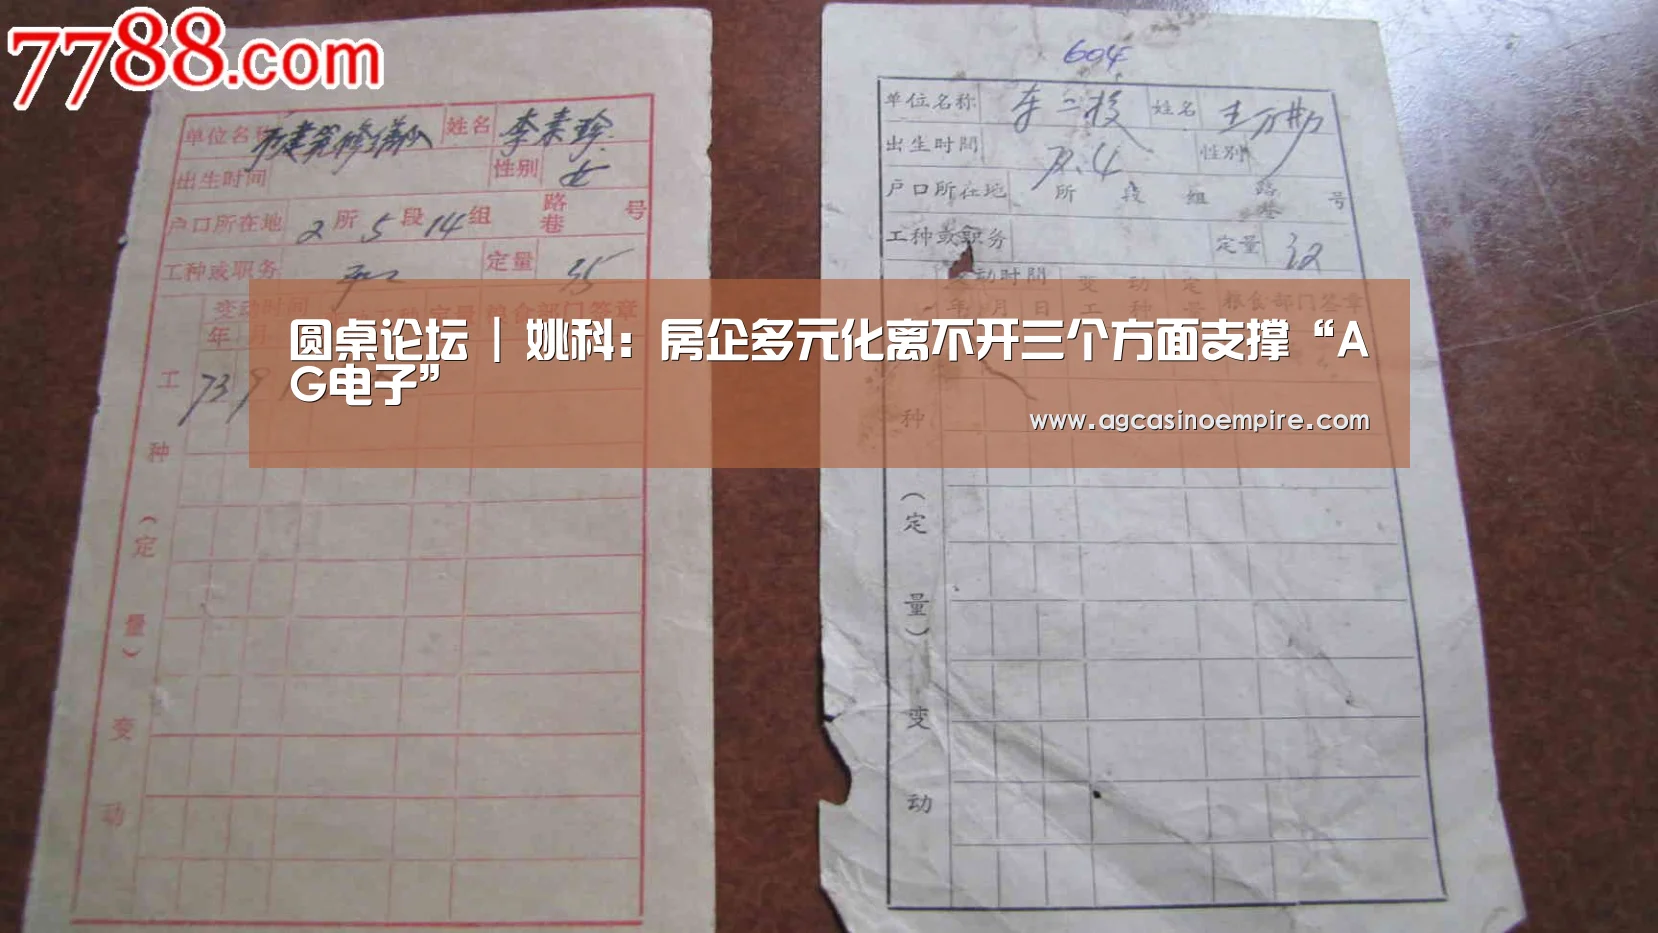 7788.com
604
单位名称 市建筑修缮队 姓名 李素珍
出生时间 性别 女
户口所在地 2 所 5 段 14 组 路巷 号
工种或职务 定量 35
变动时间
年
73 9
工种(定量)变动
单位名称 车二校 姓名
出生时間 性别
户口所在地 所 段 组 路巷 号
工种或职务 定量 32
变动时間 变动工种 定量 粮食部门签章
年 月 日
种(定量)变动
圆桌论坛 | 姚科：房企多元化离不开三个方面支撑“A
G电子”
www.agcasinoempire.com